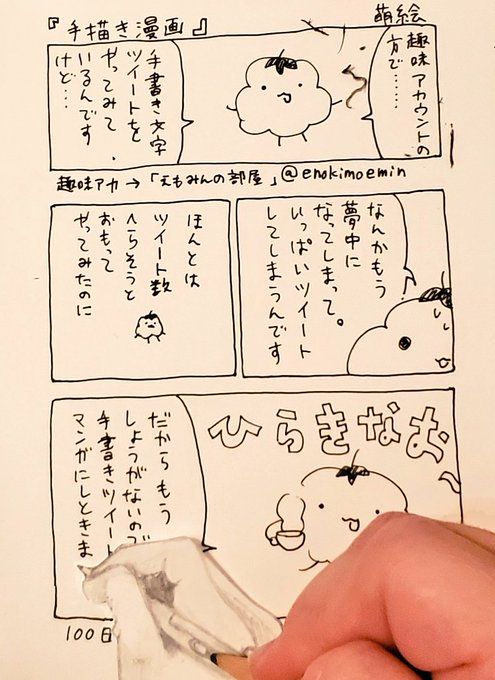 『手描き漫画』
萌絵
趣味アカウントの
方で……
手書き文字
ツイートを
やってみて
いるんです
けど……
趣味アカ→「えもみんの部屋」@enokimoemin
なんかもう
夢中に
なってしまって。
いっぱいツイート
してしまうんです
ほんとは
ツイート数
へらそうと
おもって
やってみたのに
ひらきなお
だからもう
しょうがないので
手書きツイート
マンガにしときま
100日